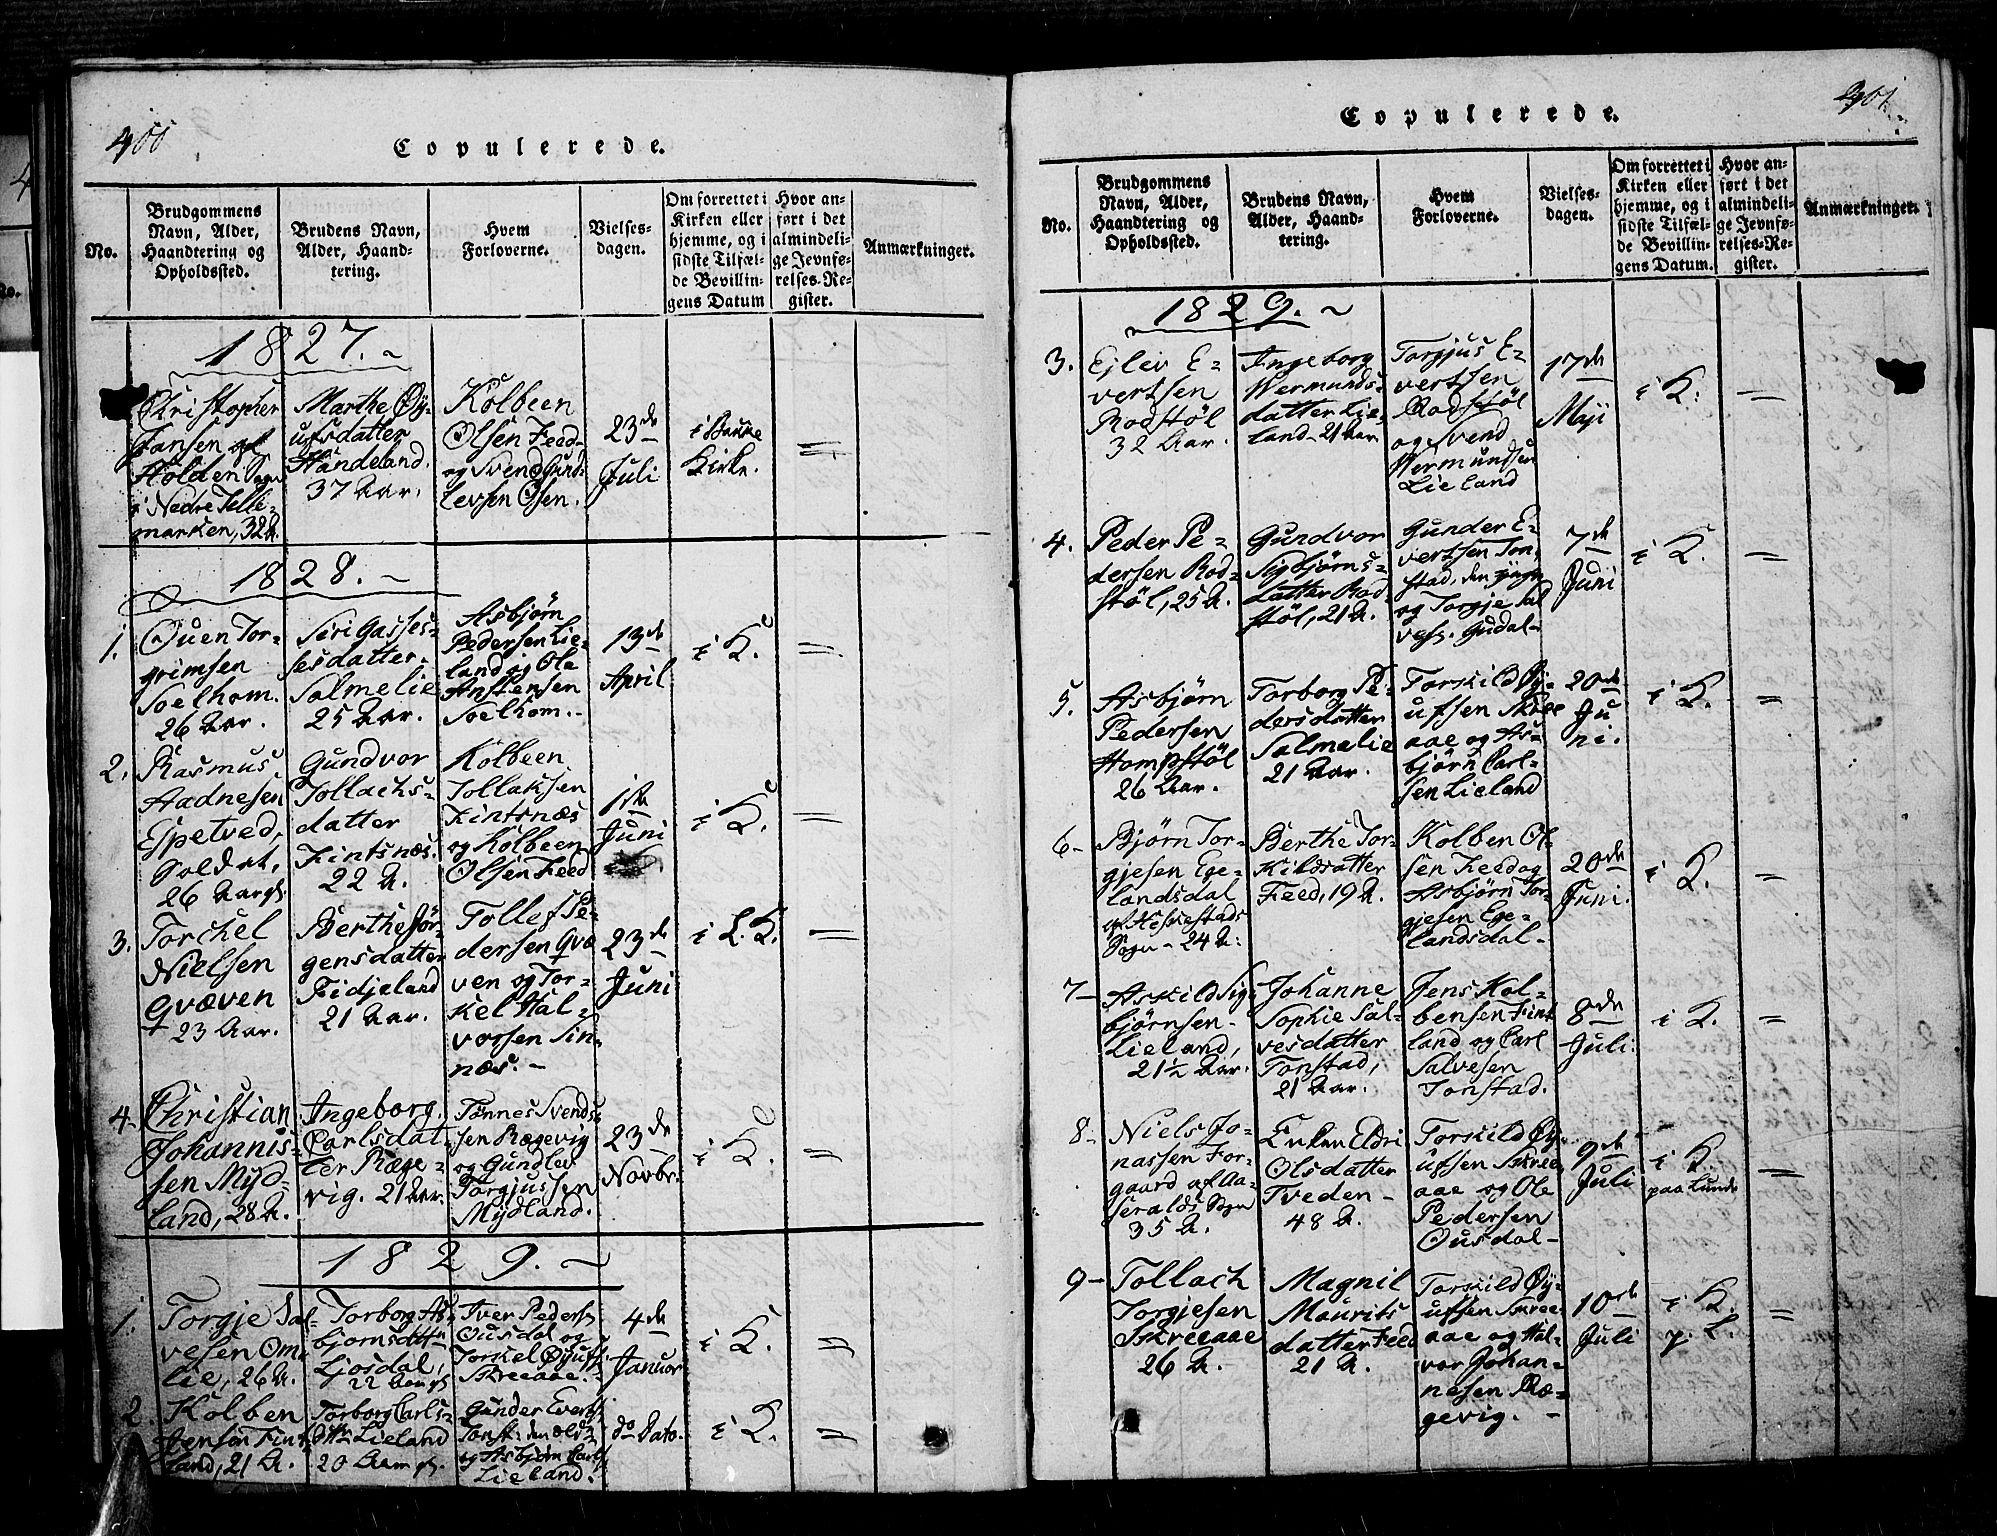 400
Copulerede.
No.
Brudgommens
Navn, Alder,
Haandtering og
Opholdssted.
Brudens Navn,
Alder, Haand-
tering.
Hvem
Forloverne.
Vielses-
dagen.
Om forrettet i
Kirken eller
hjemme, og i
sidste Tilfæl-
de Bevillin-
gens Datum
Hvor an-
ført i det
almindeli-
ge Jevnfø-
relses-Re-
gister.
Anmærkninger.
1827.
Christopher
Jansen af
Holden Sogn
i Nedre Telle-
marken, 32 A.
Marthe Øy-
ufsdatter
Haudeland.
37 Aar.
Kolbeen
Olsen Feed
og Svend
levsen Osen.
23de
Juli
i Bakke
Kirke.
=
1828.
1.
Ouen Tor-
grimsen
Soelhom.
26 Aar.
Siri Gasses-
sesdatter
Salmelie
25 Aar.
Asbjørn
Pedersen Lie-
land og Ole
Anstensen
Soelhom.
13de
April
i K.
=
2.
Rasmus
Aadnesen
Espetved,
Soldat,
26 Aar gl.
Gundvor
Tollachs-
datter
Fintsnæs.
22 A.
Kolbeen
Tollaksen
Fintsnæs
og Kolbeen
Olsen Feed
1ste
Juni
i K.
=
3.
Torchel
Nielsen
Qvæven
23 Aar.
Berthe Jør-
gensdatter
Fidjeland
21 Aar.
Tollef Pe-
dersen Qvæ
ven og Tor-
kel Hal-
vorsen Sin-
næs.
23de
Juni
i L. K.
=
4.
Christian
Johannis-
sen Myd-
land, 28 A.
Ingeborg
Carlsdat-
ter Ræge-
vig. 21 Aar.
Tønnes Svends-
sen Rægevig
og Gundlev
Torgjussen
Mydland.
23de
Novbr.
i K.
=
1829.
1.
Torgje Sal-
vesen Om-
lie, 26 A.
Torborg As-
bjørnsdattr
Ljosdal,
22 Aar gl.
Iver Peders
Ousdal og
Torkel Øyufs
Skreeaae.
4de
Januar
i K.
=
2.
Kolben
Jensen Fint
land, 21 A.
Torborg Carls-
dttr Lieland
20 Aar gl.
Gunder Everts
Tonst: den æld
og Asbjørn Carls
Lieland.
do Dato.
i K.
=
401
Copulerede.
No.
Brudgommens
Navn, Alder,
Haandtering og
Opholdssted.
Brudens Navn,
Alder, Haand-
tering.
Hvem
Forloverne.
Vielses-
dagen.
Om forrettet i
Kirken eller
hjemme, og i
sidste Tilfæl-
de Bevillin-
gens Datum.
Hvor an-
ført i det
almindeli-
ge Jevnfø-
relses-Re-
gister.
Anmærkninger.
1829.
3.
Ejlev E-
vertsen
Rodstøl
32 Aar.
Ingeborg
Wermunds-
datter Lie-
land 21 Aar
Torgjus E-
vertsen
Rodstøl
og Svend
Wermundsen
Lieland
17de
Maji
i K.
=
4.
Peder Pe-
dersen Rod-
støl, 25 A.
Gundvor
Sigbjørns-
datter Rod-
støl, 21 A.
Gunder E-
vertsen Ton-
stad, den yngr
og Torgje Sal
ves. Gudal-
7de
Juni
i K.
=
5.
Asbjørn
Pedersen
Hompstøl
26 Aar.
Torborg Pe-
dersdatter
Salmelie
21 Aar.
Torkild Øy-
ufsen Skree
aae og As-
bjørn Carl-
sen Lieland
20de
Ju
ni.
i K.
=
6-
Bjørn Tor-
gjesen Ege-
landsdal
af Hevestads
Sogn - 24 A:
Berthe Tor-
kildsatter
Feed, 19 A.
Kolben Ol-
sen Feed og
Asbjørn Tor-
gjesen Ege-
landsdal-
20de
Juni.
i K.
=
7-
Askild Sig-
bjørnsen-
Lieland,
21½ Aar.
Johanne
Sophie Sal-
vesdatter
Tonstad,
21 Aar.
Jens Kol-
bensen Fint
land og Carl
Salvesen
Tonstad.
8de
Juli
i K.
=
8-
Niels Jo-
nassen For-
gaard af Aa-
seralds Sogn
35 A.
Enken Eldri
Olsdatter
Tveden-
48 A.
Torkild Øy-
ufsen Skree-
aae og Ole
Pedersen
Ousdal-
9de
Juli
i K.
paa Lunde
=
9-
Tollach
Torgjesen
Skreeaae
26 A.
Magnil
Maurits
datter Feed
21 A.
Torkild Øy-
ufsen Skree-
aae og Hal-
vor Johan-
nesen Ræ-
gevig.
10de
Juli
i K.
p. L.
=